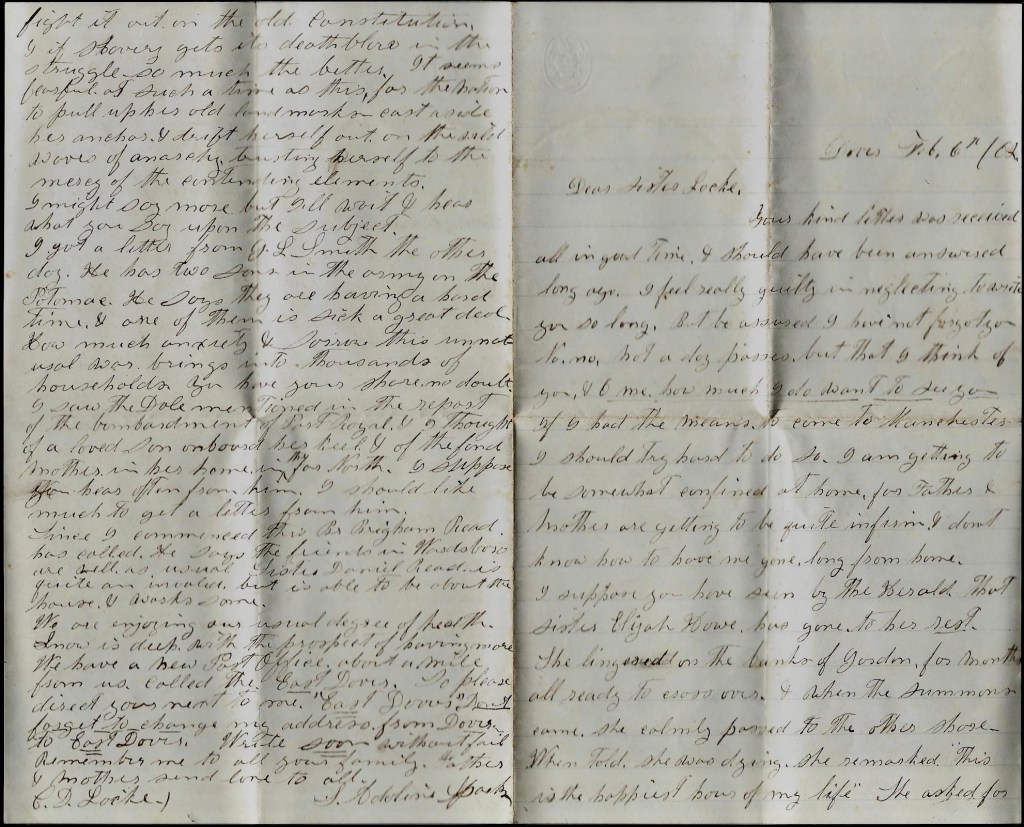 fight it out on the old Constitution.
& if Slavery gets its deathblow in the
struggle so much the better. It seems
fearful at such a time as this, for the Nation
to pull up her old landmarks cast aside
her anchor & drift herself out on the wild
waves of anarchy, trusting herself to the
mercy of the contending elements.
I might say more but I'll wait & hear
what you say upon the subject.
I got a letter from J. L. Smith the other
day. He has two sons in the army on the
Potomac. He says they are having a hard
time, & one of them is sick a great deal
How much anxiety & sorrow this unnat
ural war brings into thousands of
households. You have your share no doubt
I saw the Dale mentioned in the report
of the bombardment of Port Royal, & I thought
of a loved son onboard her keel, & of the fond
Mother in her home in the far North. I suppose
you hear often from him. I should like
much to get a letter from him.
Since I commenced this Br Brigham Read
has called. He says the friends in Wardsboro
are well as usual Sister Daniel Read is
quite an invalid but is able to be about the
house, & works some.
We are enjoying our usual degree of health.
Snow is deep, with the prospect of having more
We have a new Post Office, about a mile
from us, called the East Dover. So please
direct your next to me, "East Dover" Don't
forget to change my address from Dover
to East Dover. Write soon without fail
Remember me to all your family. Father
& Mother send love to all.
C. D. Locke.) S. Adeline
Dover Feb, 6th /62
Dear Sister Locke.
Your kind letter was received
all in good time, & should have been answered
long ago. I feel really guilty in neglecting to write
you so long. But be assured I have not forgot you
No, no, not a day passes but that I think of
you, & O me how much I do want to see you
If I had the means to come to Manchester
I should try hard to do so. I am getting to
be somewhat confined at home, for Father &
Mother are getting to be quite infirm, & dont
know how to have me gone long from home.
I suppose you have seen by the Herald that
sister Elijah Howe has gone to her rest.
She lingered on the banks of Jordan, for months
all ready to cross over. & when the summons
came, she calmly passed to the other shore
When told she was dying, she remarked "This
is the happiest hour of my life" She asked for